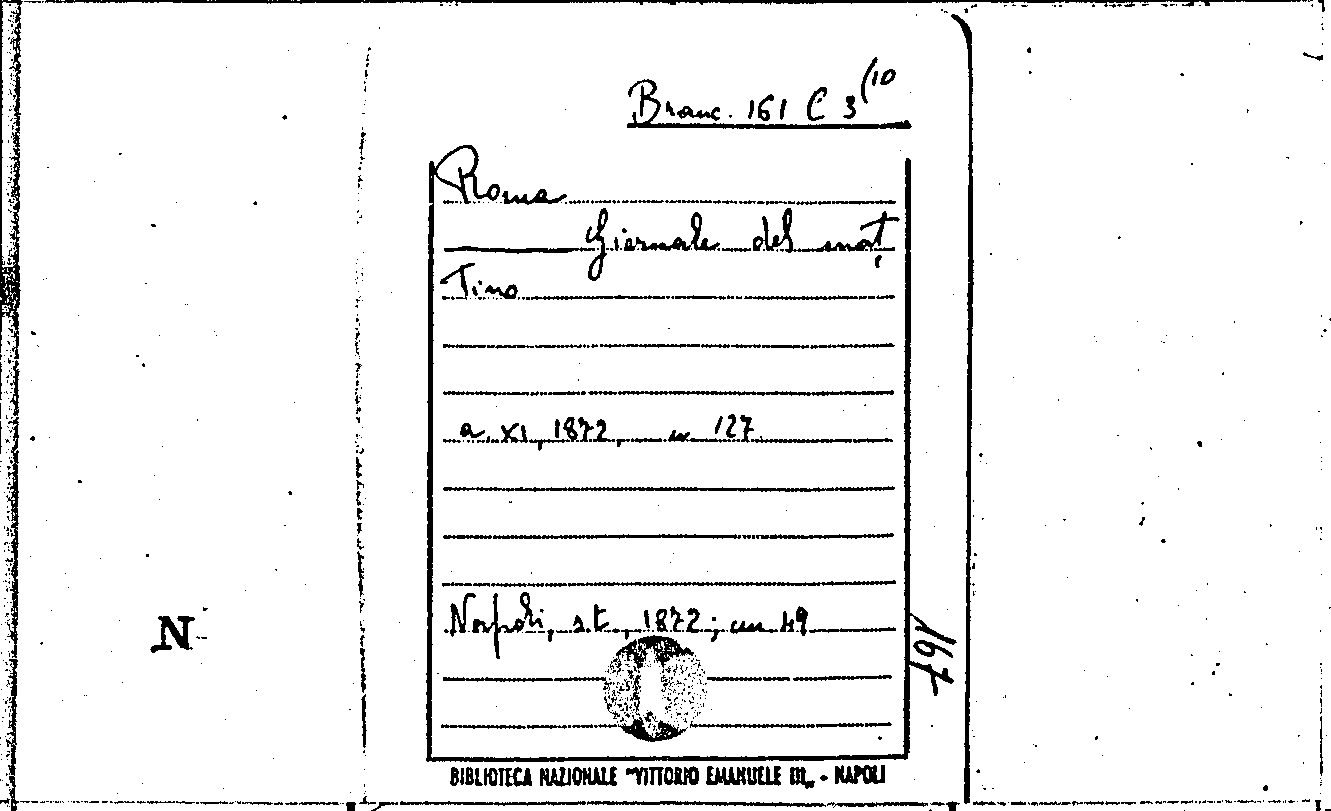 Branc. 161 C 3 (10
Roma
Giornale del mat,
Tino
a. XI, 1872, n. 127
Napoli, s.t., 1872; cm 49
N
167
BIBLIOTECA NAZIONALE "VITTORIO EMANUELE III„ - NAPOLI